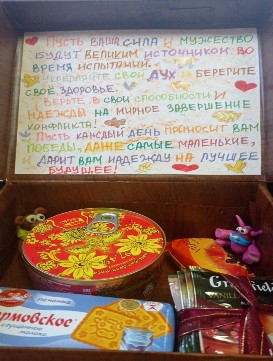 Пусть ваша сила и мужество
будут великим источником во
время испытаний.
Укрепляйте свой дух и берегите
своё здоровье.
Верьте в свои способности и
надежды на мирное завершение
конфликта!
Пусть каждый день приносит вам
победы, даже самые маленькие,
и дарит вам надежду на лучшее
будущее!
печенье
молоко